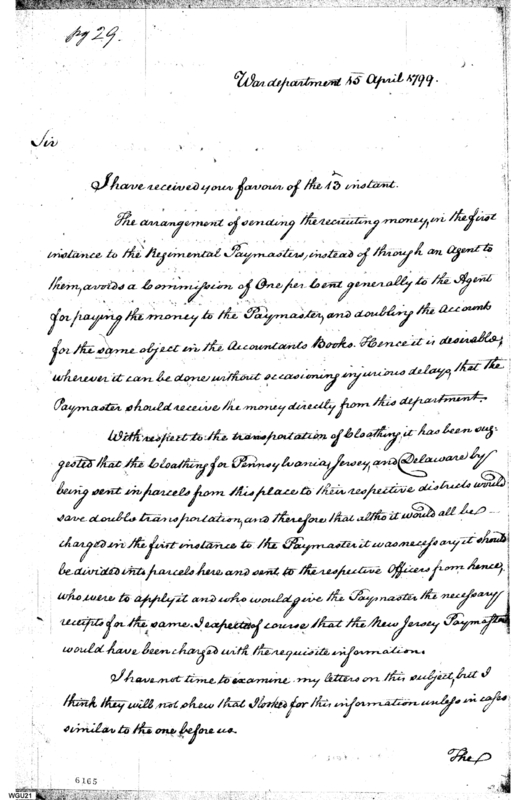 pg 29.
War department 15 April 1799.
Sir
I have received your favour of the 13 instant.
The arrangement of sending the recruiting money, in the first
instance to the Regimental Paymasters, instead of through an Agent to
them, avoids a Commission of One per Cent generally to the Agent
for paying the money to the Paymaster, and doubling the Accounts
for the same object in the Accountants Books. Hence it is desirable,
wherever it can be done without occasioning injurious delays, that the
Paymaster should receive the money directly from this department.
With respect to the transportation of Cloathing, it has been sug-
gested that the Cloathing for Pennsylvania, Jersey, and Delaware by
being sent in parcels from this place to their respective districts would
save double transportation, and therefore that altho it would all be
charged in the first instance to the Paymaster it was necessary it should
be divided into parcels here and sent to the respective Officers from hence,
who were to apply it and who would give the Paymaster the necessary
receipts for the same. I expected of course that the New Jersey Paymaster
would have been charged with the requisite information.
I have not time to examine my letters on this subject, but I
think they will not shew that I looked for this information unless in cases
similar to the one before us.
The
6165
WGU21